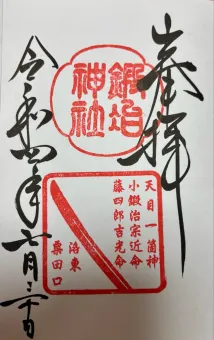 奉拝
鍛冶神社
天目一箇神
小鍛治宗近命
藤四郎吉光命
洛東
粟田口
令和四年七月二十日